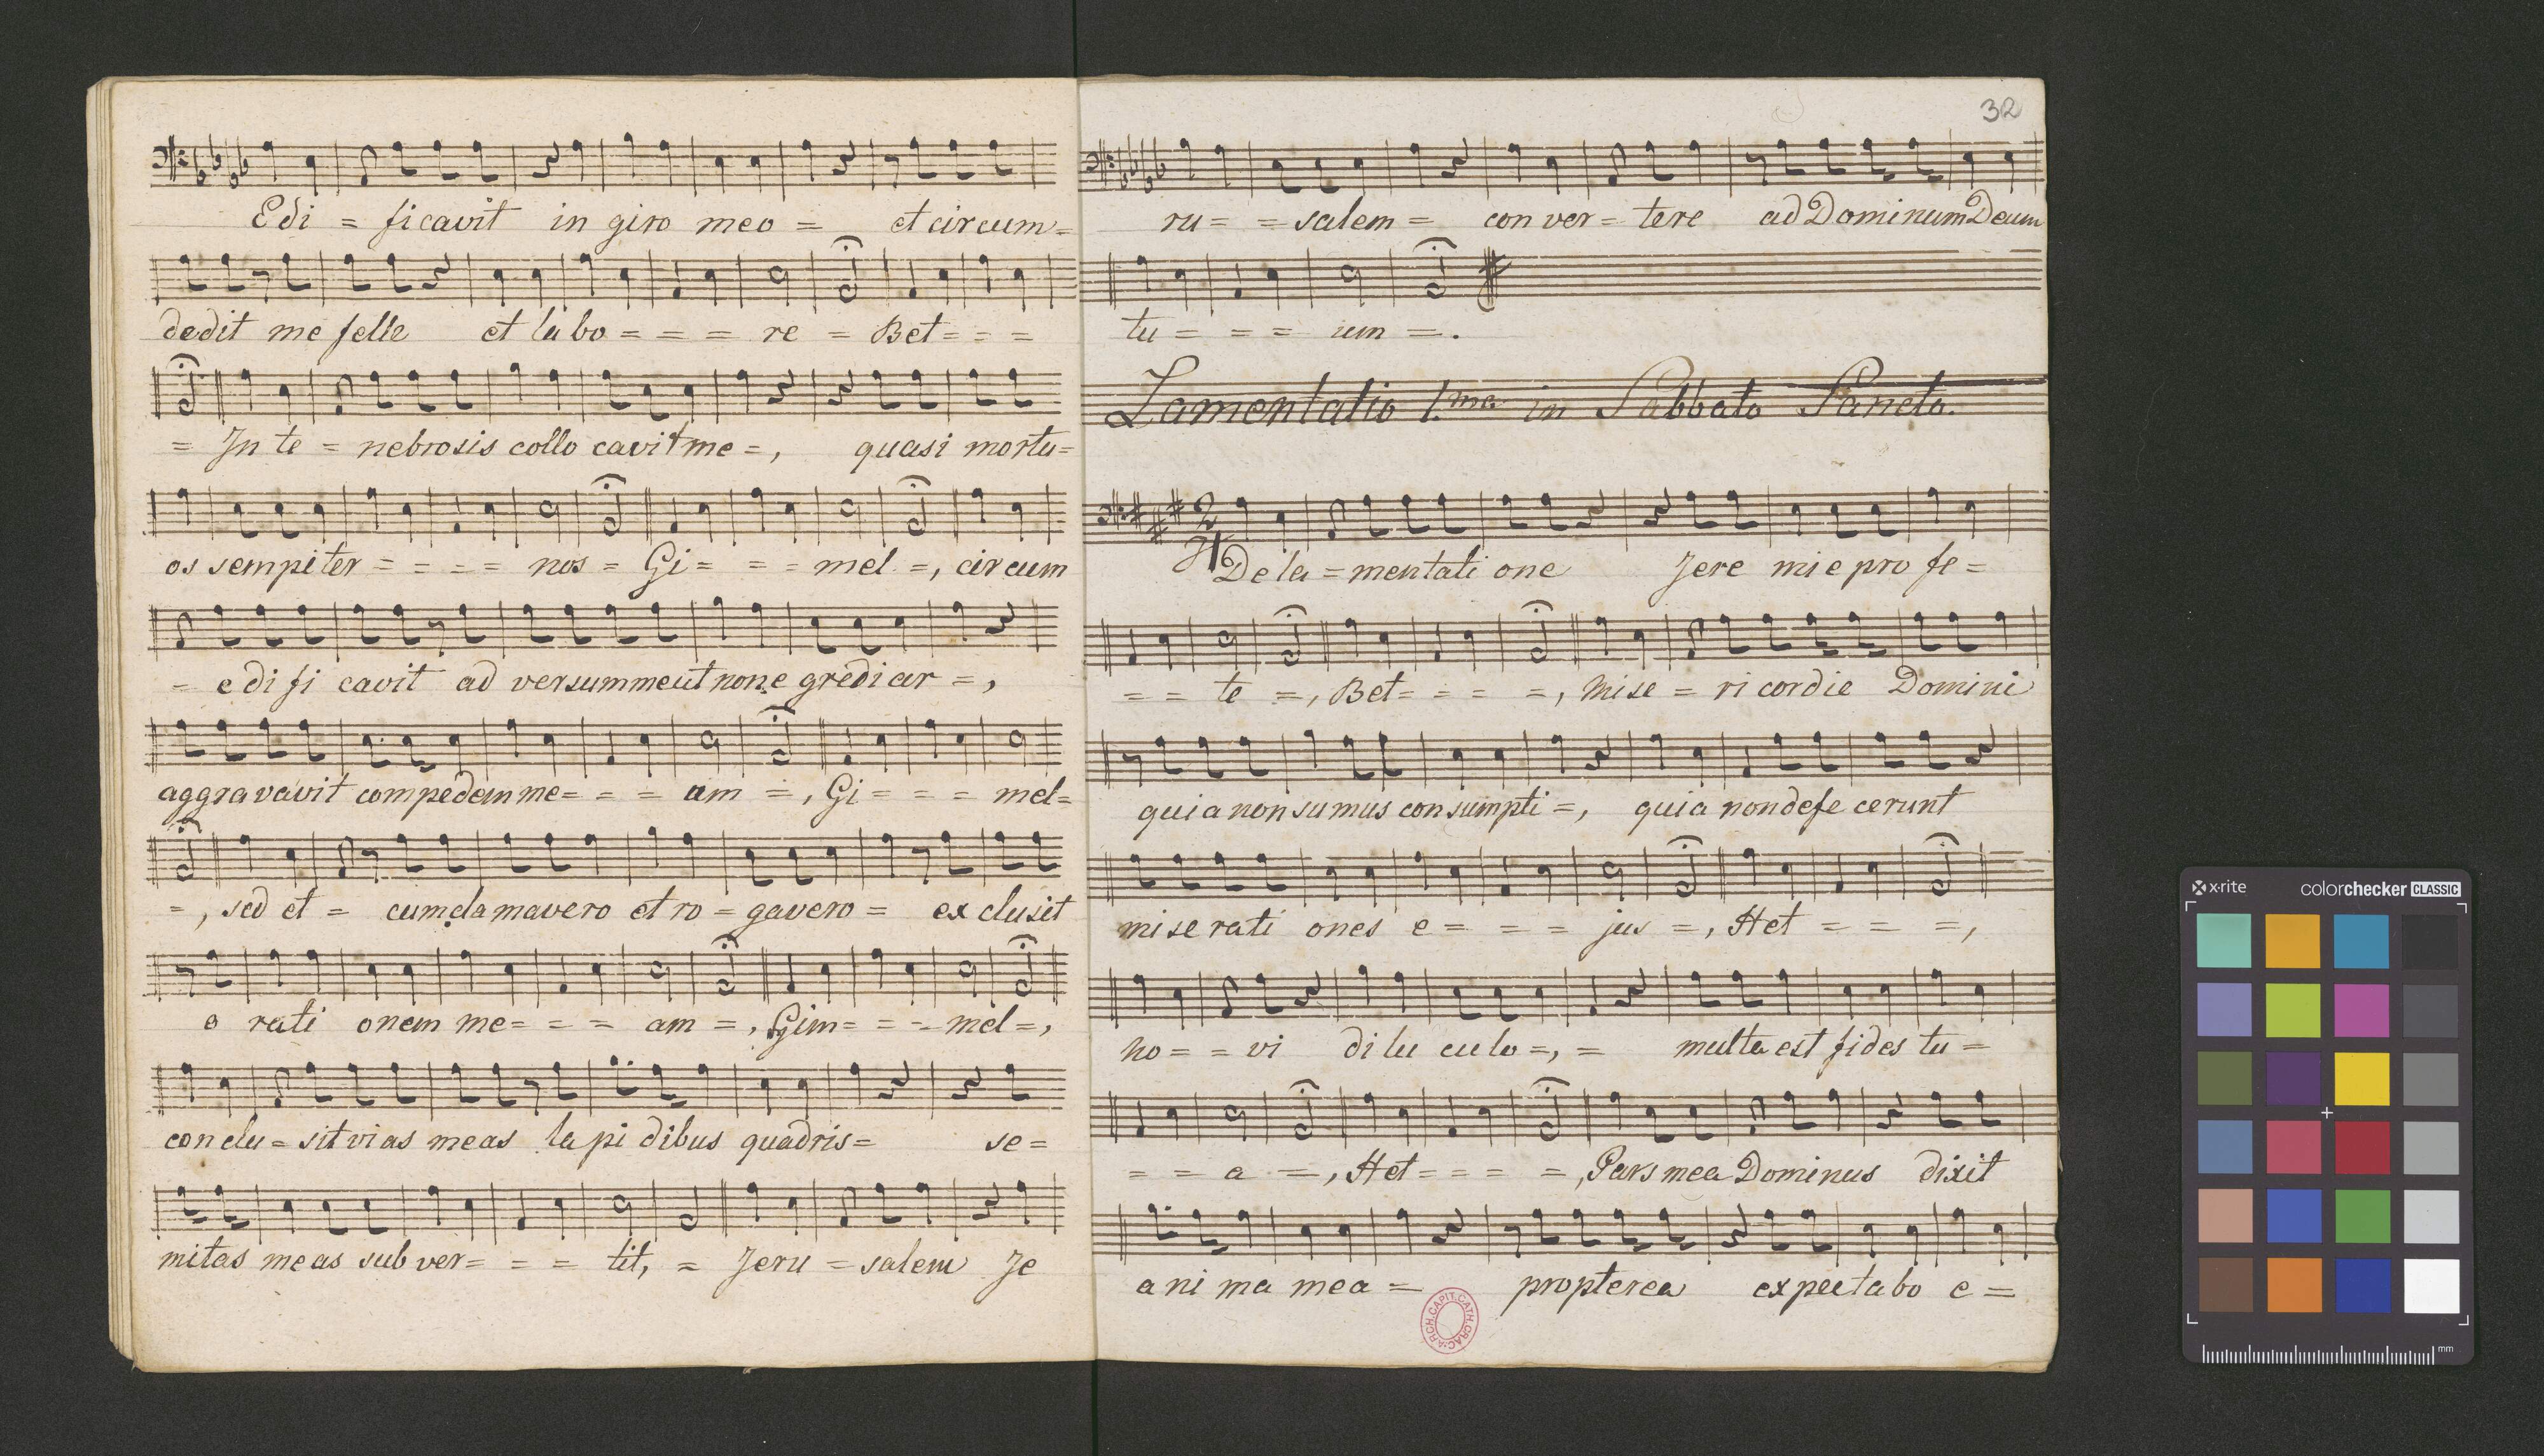 Edi = ficavit in giro meo = et circum=
dedit me felle et labo = = = re = Bet = = =
= In te = nebrosis collo cavit me =, quasi mortu=
os sempiter = = = = nos = Gi = = = mel =, circum
= edi fi cavit ad versum me ut non e gredi ar =,
aggra vavit compedem me = = = am =, Gi = = = mel=
=, sed et = cum cla mavero et ro = gavero = ex clusit
o rati onem me = = = am =, Gim = = = mel =,
con clu = sit vi as meas la pi dibus quadris = se =
mitas me as sub ver = = = tit, = Jeru = salem Je
32
ru = = salem = con ver = tere ad Dominum Deum
tu = = = um =.
Lamentatio 1.ma in Sabbato Sancto.
2
De la = mentati one Jere mi e pro fe =
= = te =, Bet = = = =, mise = ri cordie Domini
quia non su mus con sumpti =, quia non defe cerunt
mi se rati ones e = = = jus =, Het = = =,
no = = vi di lu culo =, = multa est fides tu =
= = a =, Het = = = =, Pars mea Dominus dixit
a ni ma mea = propterea expecta bo e =
ARCH. CAPIT. CATH. CRAC.
x·rite colorchecker CLASSIC
mm